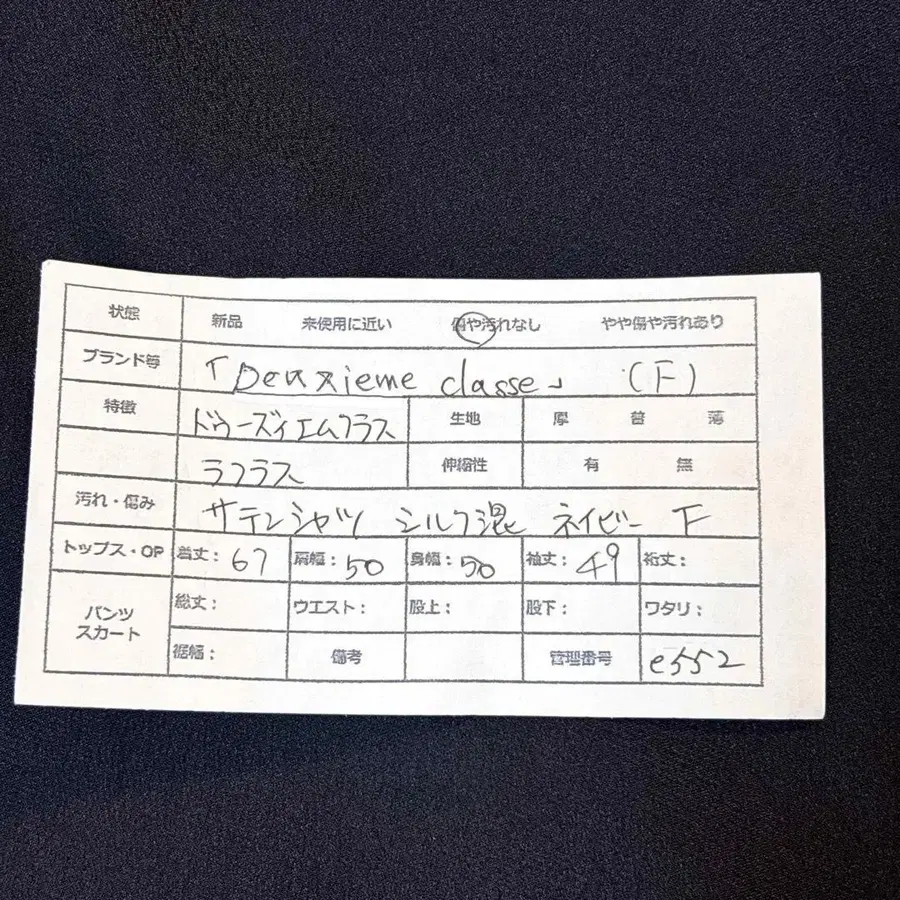 状態 新品 未使用に近い 傷や汚れなし やや傷や汚れあり
ブランド等 「Deuxieme classe」 (F)
特徴 ドゥーズィエムクラス 生地 厚 普 薄
ラクラス 伸縮性 有 無
汚れ・傷み サテンシャツ シルク混 ネイビー F
トップス・OP 着丈: 67 肩幅: 50 身幅: 50 袖丈: 49 裄丈:
パンツ スカート 総丈: ウエスト: 股上: 股下: ワタリ:
裾幅: 備考 管理番号 e552